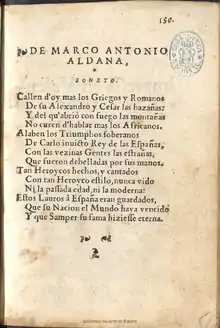 150.
DE MARCO ANTONIO
ALDANA,
SONETO.
Callen d'oy mas los Griegos y Romanos
De su Alexandro y Cesar las hazañas:
Y del qu'abrió con fuego las montañas
No curen d'hablar mas los Africanos.
Alaben los Triumphos soberanos
De Carlo inuicto Rey de las Españas,
Con las vezinas Gentes las estrañas,
Que fueron debelladas por sus manos.
Tan Heroycos hechos, y cantados
Con tan Heroyco estilo, nunca vido
Ni la passada edad, ni la moderna:
Estos Lauros à España eran guardados,
Que su Nacion el Mundo haya vencido
Y que Samper su fama hiziesse eterna.
2
Biblioteca Nacional de España